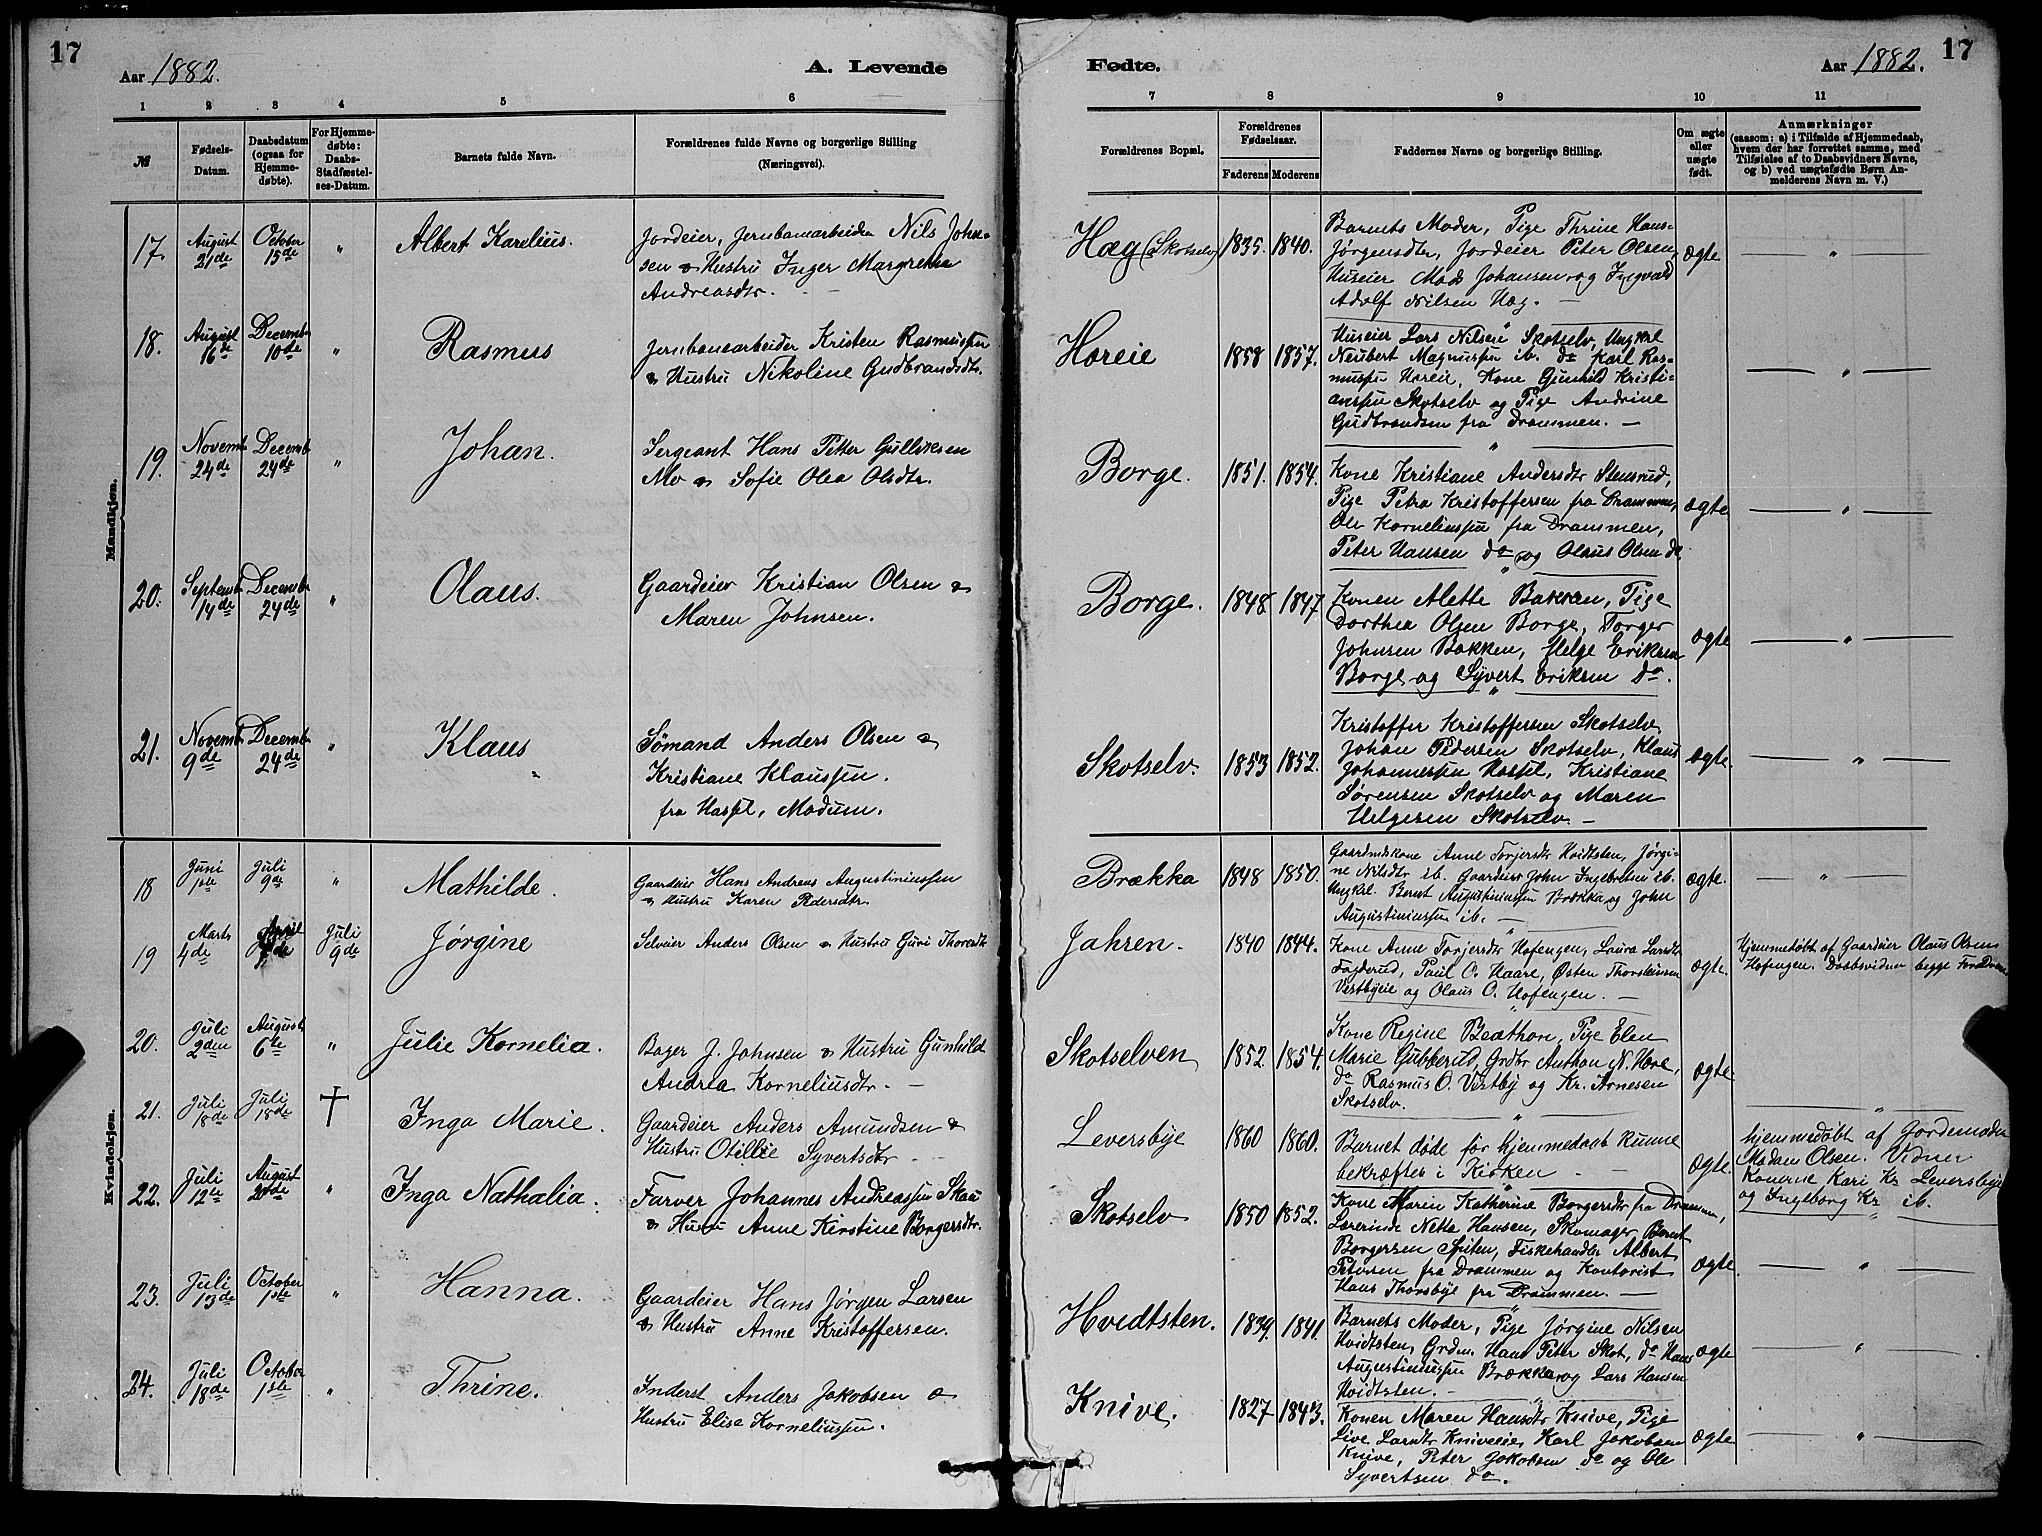 17
Aar 1882.
A. Levende
1 2 3 4 5 6
№
Fødsels-
Datum.
Daabsdatum
(ogsaa for
Hjemme-
døbte).
For Hjemme-
døbte:
Daabs-
Stadfæstel-
ses-Datum.
Barnets fulde Navn.
Forældrenes fulde Navne og borgerlige Stilling
(Næringsvei).
Mandkjøn.
17. August 21de October 15de " Albert Karelius.
Jordeier, Jernbanearbeider Nils John-
sen & Hustru Inger Margrethe
Andreasdtr.
18. August 16de Decembr 10de " Rasmus
Jernbanearbeider Kristen Rasmussen
& Hustru Nikoline Gudbrandsdtr.
19. Novembr 24de Decembr 24de " Johan.
Sergeant Hans Petter Gulliksen
Mo & Sofie Olea Olsdtr.
20. Septembr 14de Decembr 24de " Olaus.
Gaardeier Kristian Olsen &
Maren Johnsen.
21. Novembr 9de Decembr 24de " Klaus
Sømand Anders Olsen &
Kristiane Klaussen.
fra Hassel, Modum.
Kvindekjøn.
18 Juni 1ste Juli 9de " Mathilde.
Gaardeier Hans Andreas Augustiniussen
& Hustru Karen Pedersdtr.
19 Marts 4de April Juli 9de Jørgine
Selveier Anders Olsen & Hustru Guri Thorsdtr
20. Juli 2den August 6te " Julie Kornelia.
Bager J. Johnsen & Hustru Gunhild
Andrea Korneliusdtr. —
21. Juli 18de Juli 18de † Inga Marie.
Gaardeier Anders Amundsen &
Hustru Otillie Syvertsdtr.
22. Juli 12te August " Inga Nathalia.
Farver Johannes Andreassen Skau
& Hustru Anne Kirstine Borgersdtr.
23. Juli 13de October 1ste " Hanna.
Gaardeier Hans Jørgen Larsen
& Hustru Anne Kristoffersen.
24. Juli 18de October 1ste " Thrine.
Inderst Anders Jakobsen &
Hustru Elise Korneliussen.
Fødte.
Aar 1882.
17
7 8 9 10 11
Forældrenes Bopæl.
Forældrenes
Fødselsaar.
Faderens Moderens
Faddernes Navne og borgerlige Stilling.
Om ægte
eller
uægte
født.
Anmærkninger
(saasom: a) i Tilfælde af Hjemmedaab,
hvem der har forrettet samme, med
Tilføielse af to Daabsvidners Navne,
og b) ved uægtefødte Børn An-
melderens Navn m. V.)
Hæg (Skotselv) 1835. 1840.
Barnets Moder, Pige Thrine Hans-
Jørgensdtr, Jordeier Peter Olsen,
Huseier Mads Johansen og Ingvald
Adolf Nilsen Hæg. —
ægte — " —
Horeie 1858 1857.
Huseier Lars Nilsen Skotselv, Ungkrl
Neubert Magnussen ib. do Karl Ras-
mussen Horeie, Kone Gunhild Kristi-
anssen Skotselv og Pige Andrine
Gudbrandsen fra Drammen. —
— " —
Borge. 1851. 1854.
Kone Kristiane Andersdtr Stensrud,
Pige Petra Kristoffersen fra Drammen,
Ole Korneliussen fra Drammen,
Peter Hansen do og Olaus Olsen do
ægte — " —
Borge. 1848 1847
Konen Alette Bakken, Pige
Dorthea Olsen Borge, Torger
Johnsen Bakken, Helge Eriksen
Borge og Syvert Eriksen do.
ægte — " —
Skotselv. 1853 1852.
Kristoffer Kristoffersen Skotselv
Johan Pedersen Skotselv, Klaus
Johannessen Hassel, Kristiane
Sørensen Skotselv og Maren
Helgesen Skotselv —
ægte. — " —
Brækka 1848 1850.
Gaardmdskone Anne Torjersdtr Hvidtsten, Jørgi-
ne Nilsdtr ib. Gaardeier John Ingebretsen ib.
Ungkrl. Bernt Augustiniussen Brækka og John
Augustiniussen ib. —
ægte. — " —
Jahren. 1840 1844.
Kone Anne Torjersdtr Hofengen, Laura Larsdtr
Fagderud, Paul O. Haare, Østen Thorsteinsen
Vestbyeie og Olaus O. Hofengen. —
ægte.
Hjemmedøbt af Gaardeier Olaus Olsen
Hofengen. Daabsvidner begge Forældrene
Skotselven 1852 1854.
Kone Regine Beathon, Pige Elen
Marie Gubberud, Grdbr Anthon N. Hære,
do Rasmus O. Vestby og Kr. Arnesen
Skotselv.
ægte — " —
Leversbye 1860 1860.
Barnet døde før hjemmedaab kunne
bekræftes i Kirken —
ægte
hjemmedøbt af Jordemoder
Madam Olsen. Vidner
Konerne Kari Kr Leversbye
og Ingeborg Kr ib.
Skotselv 1850 1852.
Kone Maren Katherine Borgersdtr fra Drammen,
Lærerinde Netta Hansen, Skomager Bernt
Borgersen Spiten, Fiskehandler Albert
Petersen fra Drammen og Kontorist
Hans Thorsbye fra Drammen. —
ægte. — " —
Hvidtsten. 1839. 1841.
Barnets Moder, Pige Jørgine Nilsen
Hvidtsten, Grdm. Hans Peter Skot, do Hans
Augustiniussen Brækka og Lars Hansen
Hvidtsten. —
ægte — " —
Knive. 1827 1843.
Konen Maren Hansdtr Knive, Pige
Live Larsdtr Kniveeie, Karl Jakobsen
Knive, Peter Jakobsen do og Ole
Syvertsen do.
ægte — " —